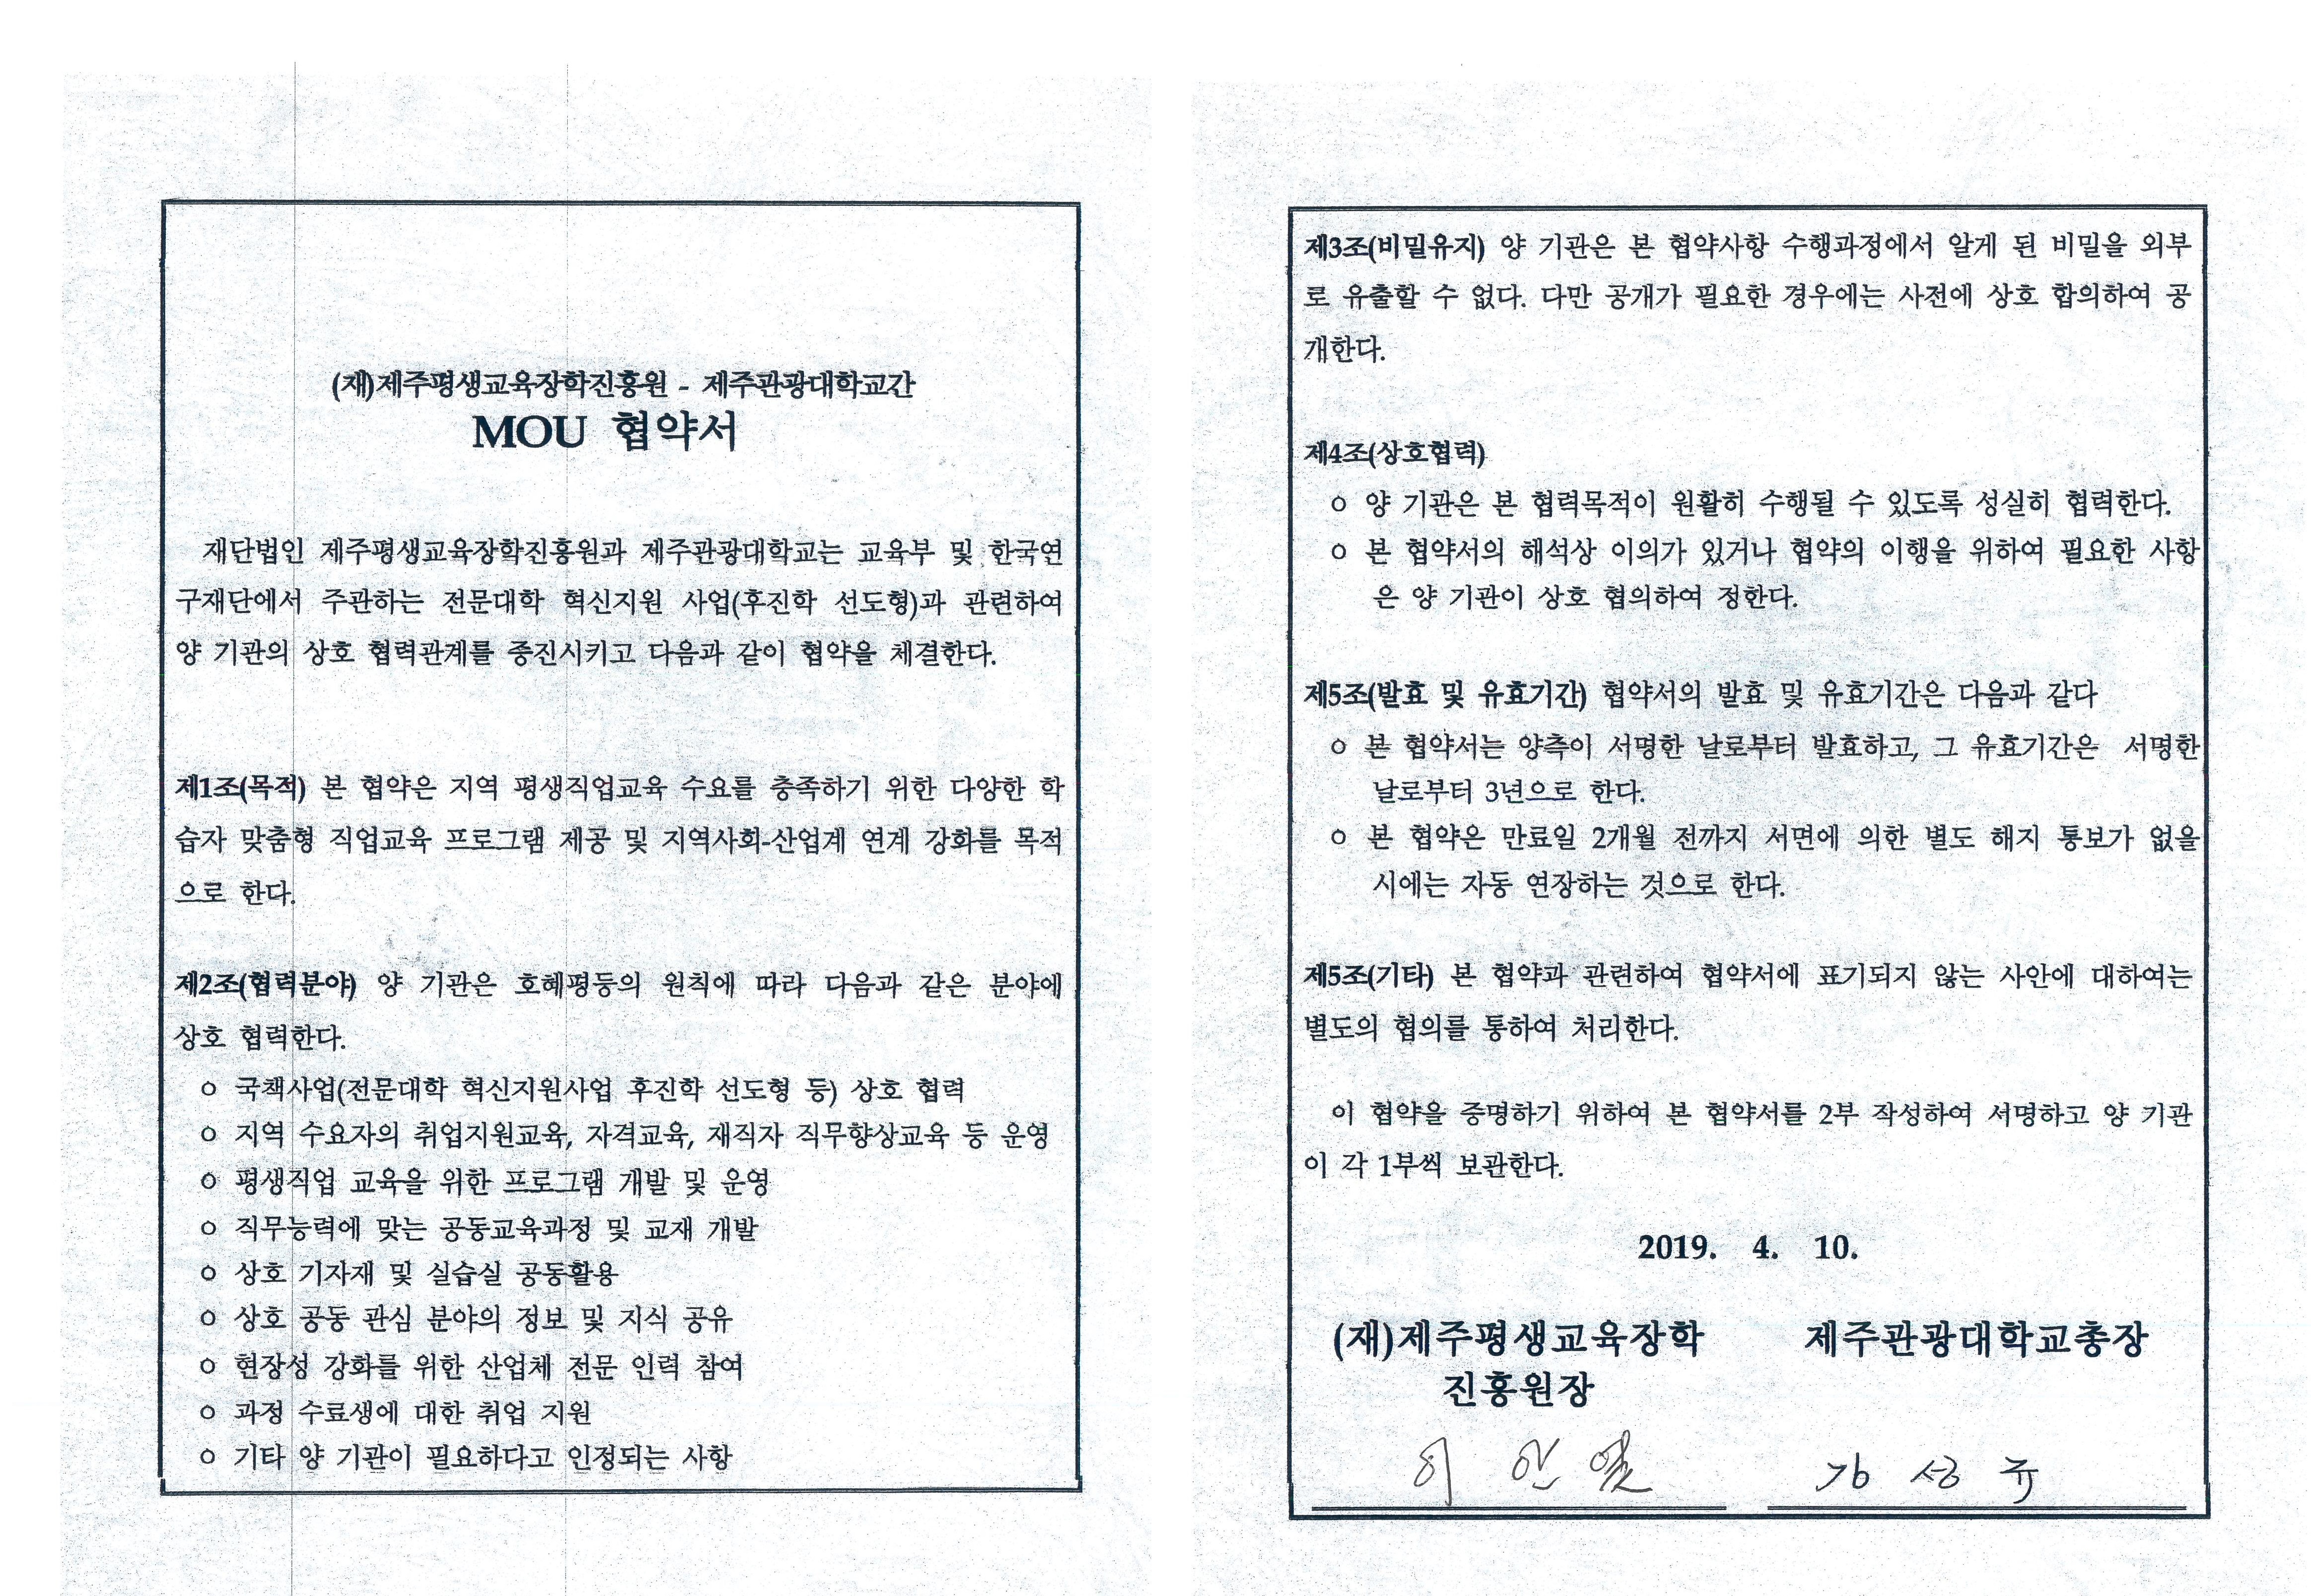 (재)제주평생교육장학진흥원 - 제주관광대학교간
MOU 협약서
재단법인 제주평생교육장학진흥원과 제주관광대학교는 교육부 및 한국연
구재단에서 주관하는 전문대학 혁신지원 사업(후진학 선도형)과 관련하여
양 기관의 상호 협력관계를 증진시키고 다음과 같이 협약을 체결한다.
제1조(목적) 본 협약은 지역 평생직업교육 수요를 충족하기 위한 다양한 학
습자 맞춤형 직업교육 프로그램 제공 및 지역사회-산업계 연계 강화를 목적
으로 한다.
제2조(협력분야) 양 기관은 호혜평등의 원칙에 따라 다음과 같은 분야에
상호 협력한다.
ㅇ 국책사업(전문대학 혁신지원사업 후진학 선도형 등) 상호 협력
ㅇ 지역 수요자의 취업지원교육, 자격교육, 재직자 직무향상교육 등 운영
ㅇ 평생직업 교육을 위한 프로그램 개발 및 운영
ㅇ 직무능력에 맞는 공동교육과정 및 교재 개발
ㅇ 상호 기자재 및 실습실 공동활용
ㅇ 상호 공동 관심 분야의 정보 및 지식 공유
ㅇ 현장성 강화를 위한 산업체 전문 인력 참여
ㅇ 과정 수료생에 대한 취업 지원
ㅇ 기타 양 기관이 필요하다고 인정되는 사항
제3조(비밀유지) 양 기관은 본 협약사항 수행과정에서 알게 된 비밀을 외부
로 유출할 수 없다. 다만 공개가 필요한 경우에는 사전에 상호 합의하여 공
개한다.
제4조(상호협력)
ㅇ 양 기관은 본 협력목적이 원활히 수행될 수 있도록 성실히 협력한다.
ㅇ 본 협약서의 해석상 이의가 있거나 협약의 이행을 위하여 필요한 사항
은 양 기관이 상호 협의하여 정한다.
제5조(발효 및 유효기간) 협약서의 발효 및 유효기간은 다음과 같다
ㅇ 본 협약서는 양측이 서명한 날로부터 발효하고, 그 유효기간은 서명한
날로부터 3년으로 한다.
ㅇ 본 협약은 만료일 2개월 전까지 서면에 의한 별도 해지 통보가 없을
시에는 자동 연장하는 것으로 한다.
제5조(기타) 본 협약과 관련하여 협약서에 표기되지 않는 사안에 대하여는
별도의 협의를 통하여 처리한다.
이 협약을 증명하기 위하여 본 협약서를 2부 작성하여 서명하고 양 기관
이 각 1부씩 보관한다.
2019. 4. 10.
(재)제주평생교육장학 제주관광대학교총장
진흥원장